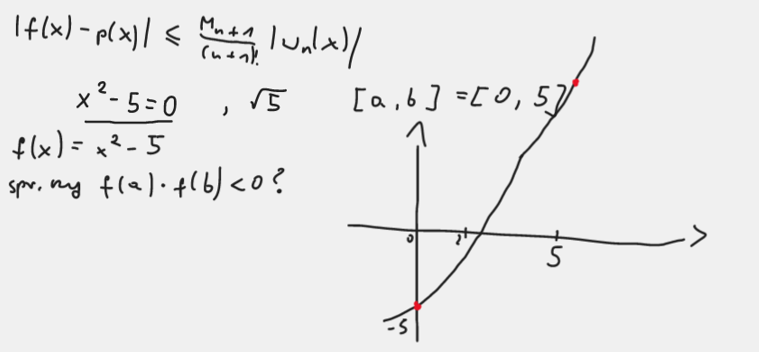 |f(x) - p(x)| ≤ Mn+1/(n+1)! |ωn(x)|
x² - 5 = 0 , √5 [a, b] = [0, 5]
f(x) = x² - 5
f(a) · f(b) < 0 ?
0 2 5
-5